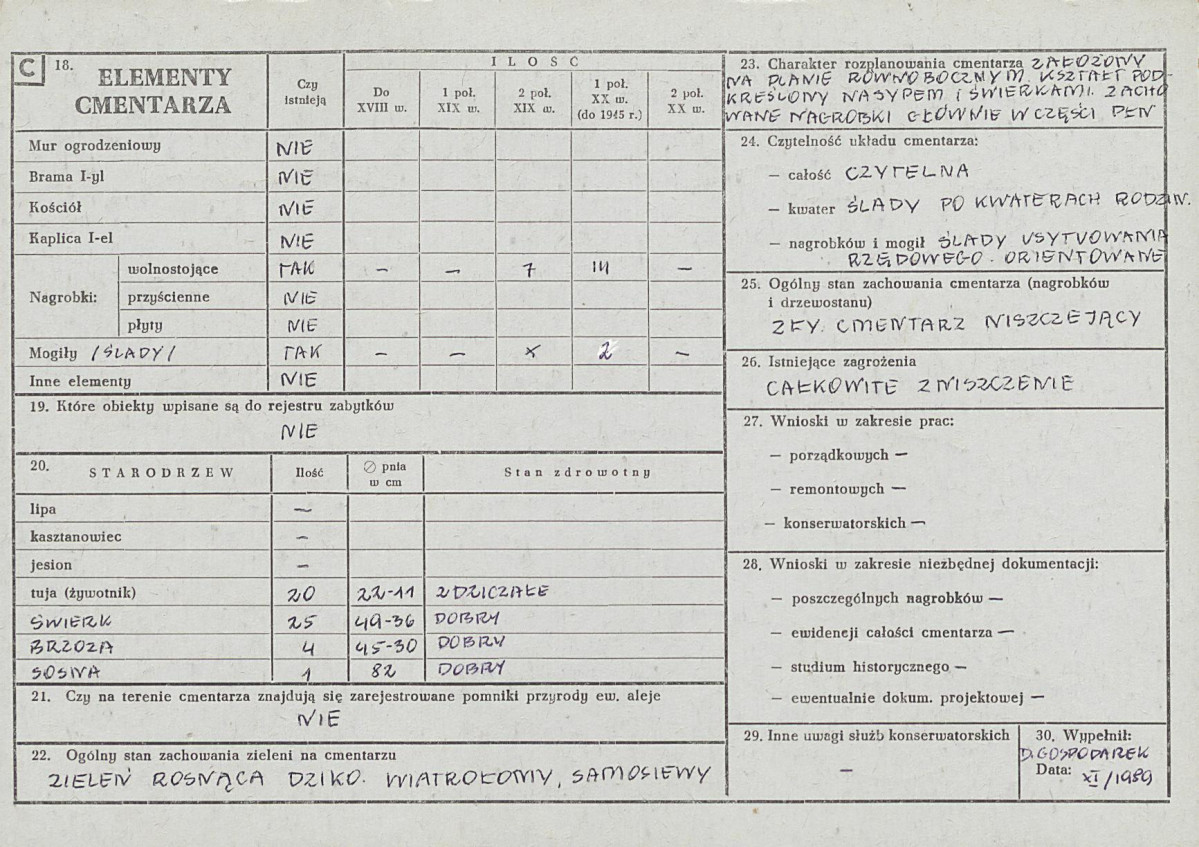 C 18. ELEMENTY CMENTARZA
Czy istnieją
I L O Ś Ć
Do XVIII w.
1 poł. XIX w.
2 poł. XIX w.
1 poł. XX w. (do 1945 r.)
2 poł. XX w.
Mur ogrodzeniowy NIE
Brama I-yl NIE
Kościół NIE
Kaplica I-el NIE
Nagrobki: wolnostojące TAK – – 7 – 
przyścienne NIE
płyty NIE
Mogiły /ŚLADY/ TAK – – X 2 –
Inne elementy NIE
19. Które obiekty wpisane są do rejestru zabytków
NIE
20. STARODRZEW Ilość ∅ pnia w cm Stan zdrowotny
lipa –
kasztanowiec –
jesion –
tuja (żywotnik) 20 22-11 ZDZICZAŁE
ŚWIERK 25 49-36 DOBRY
BRZOZA 4 45-30 DOBRY
SOSNA 1 82 DOBRY
21. Czy na terenie cmentarza znajdują się zarejestrowane pomniki przyrody ew. aleje
NIE
22. Ogólny stan zachowania zieleni na cmentarzu
ZIELEŃ ROSNĄCA DZIKO. WIATROŁOMY, SAMOSIEWY
23. Charakter rozplanowania cmentarza ZAŁOŻONY
NA PLANIE RÓWNOBOCZNYM. KSZTAŁT POD-
KREŚLONY NASYPEM I ŚWIERKAMI. ZACHO
WANE NAGROBKI GŁÓWNIE W CZĘŚCI PŁN
24. Czytelność układu cmentarza:
– całość CZYTELNA
– kwater ŚLADY PO KWATERACH RODZIN.
– nagrobków i mogił ŚLADY USYTUOWANIA
RZĘDOWEGO. ORIENTOWANE
25. Ogólny stan zachowania cmentarza (nagrobków
i drzewostanu)
ZŁY. CMENTARZ NISZCZEJĄCY
26. Istniejące zagrożenia
CAŁKOWITE ZNISZCZENIE
27. Wnioski w zakresie prac:
– porządkowych –
– remontowych –
– konserwatorskich –
28. Wnioski w zakresie niezbędnej dokumentacji:
– poszczególnych nagrobków –
– ewidencji całości cmentarza –
– studium historycznego –
– ewentualnie dokum. projektowej –
29. Inne uwagi służb konserwatorskich
–
30. Wypełnił:
D. GOSPODAREK
Data: XI/1989